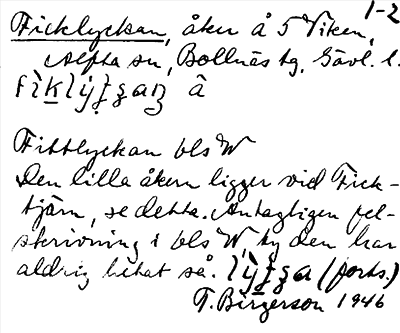 1-2
Ficklyckan, åker å 5 Viken,
Alfta sn, Bollnäs tg, Gävl. l.
â
Fittlyckan bls W
Den lilla åkern ligger vid Fick-
tjärn, se detta. Antagligen fel-
skrivning i bls W, ty den har
aldrig hetat så. (forts.)
T. Birgerson 1946